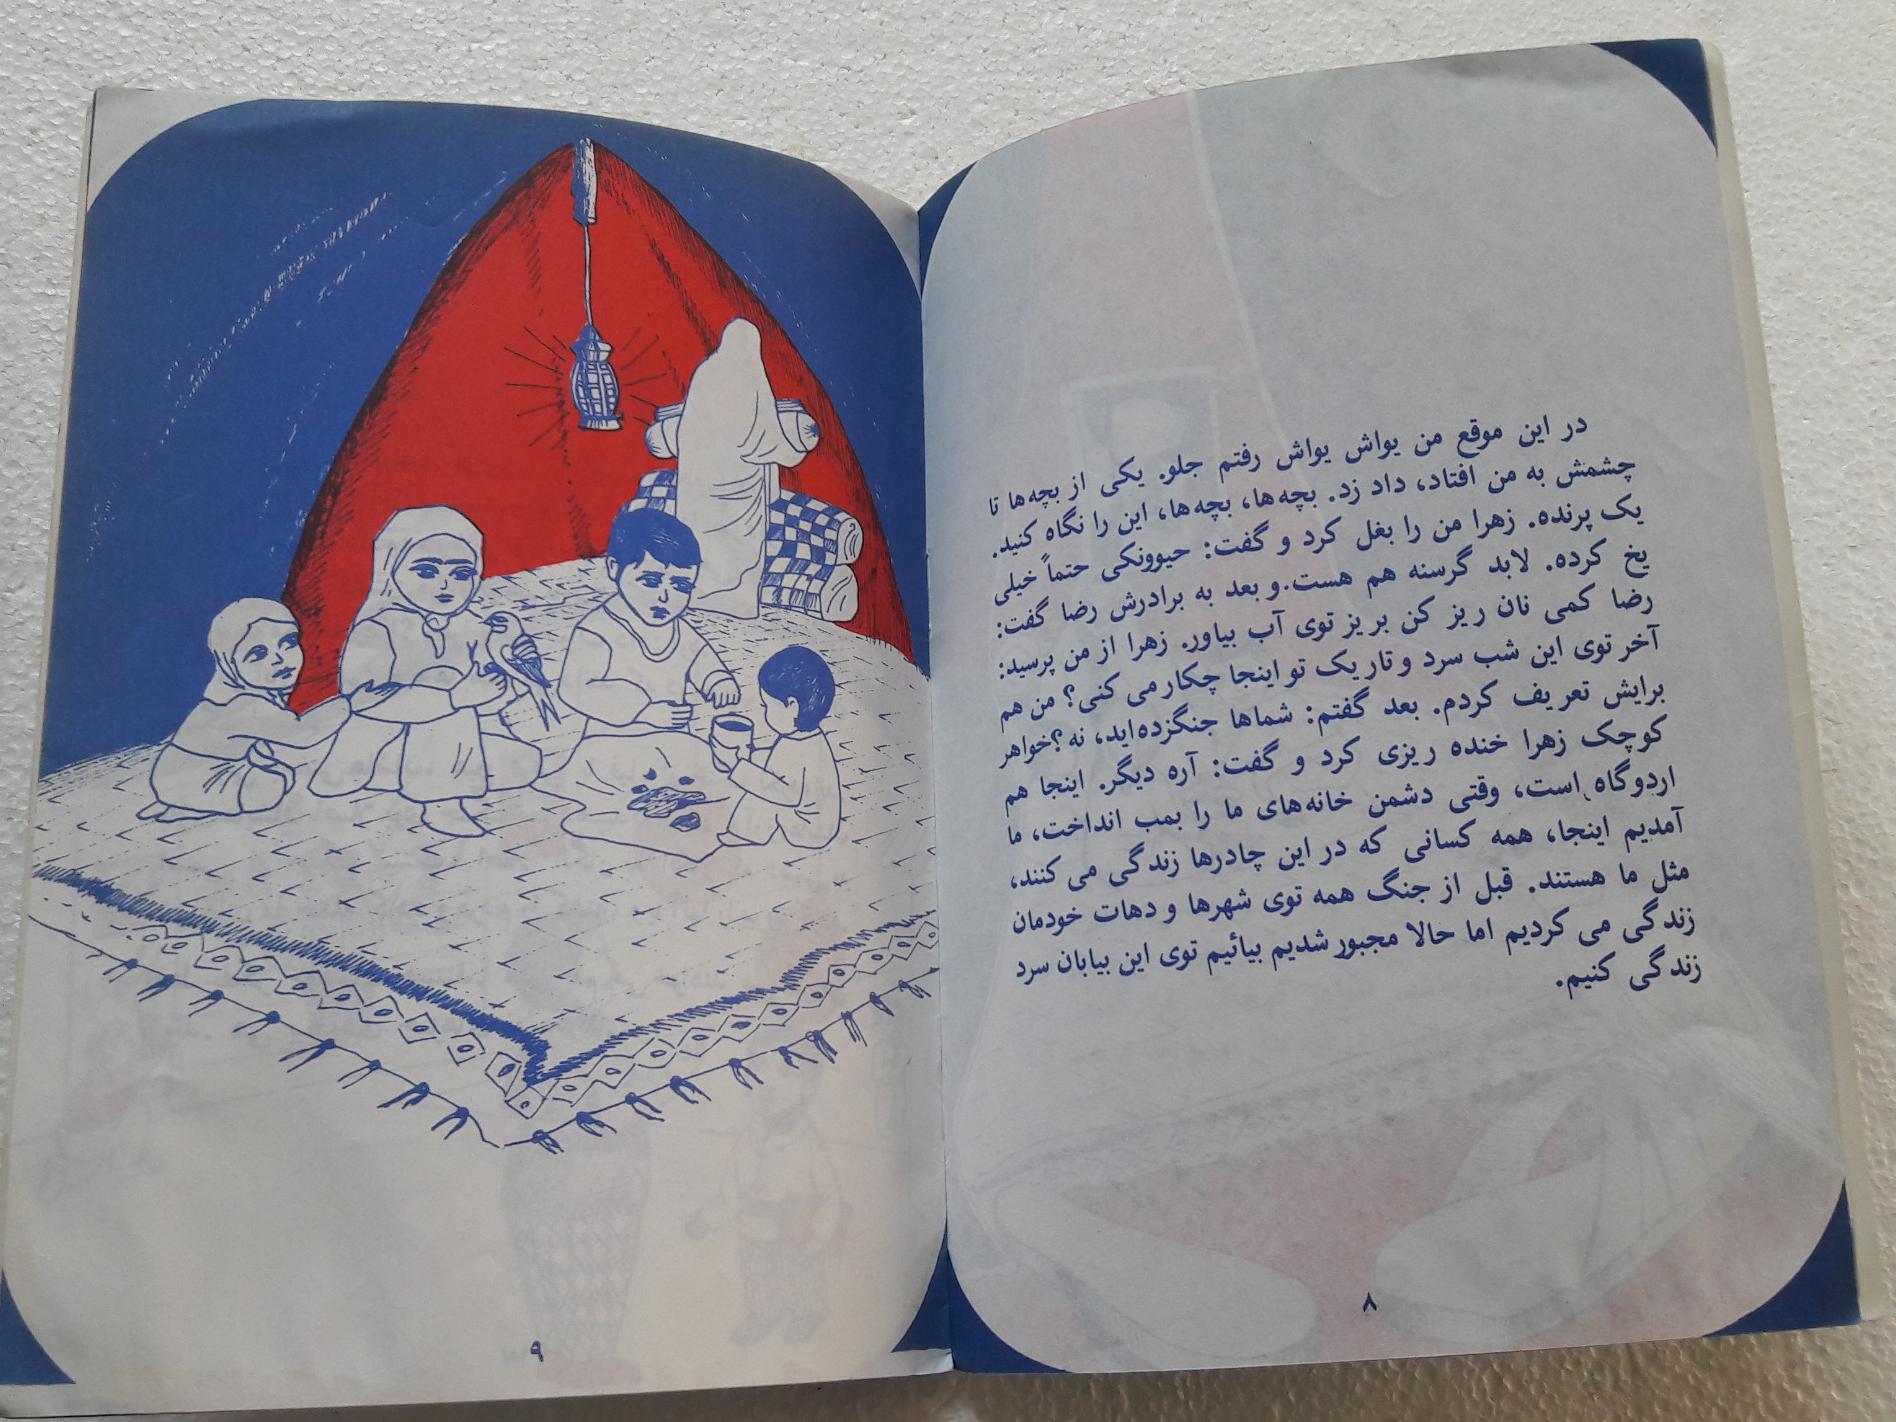 در این موقع من یواش یواش رفتم جلو. یکی از بچه‌ها تا
چشمش به من افتاد، داد زد. بچه‌ها، بچه‌ها، این را نگاه کنید.
یک پرنده. زهرا من را بغل کرد و گفت: حیوونکی حتماً خیلی
یخ کرده. لابد گرسنه هم هست. و بعد به برادرش رضا گفت:
رضا کمی نان ریز کن بریز توی آب بیاور. زهرا از من پرسید:
آخر توی این شب سرد و تاریک تو اینجا چکار می کنی؟ من هم
برایش تعریف کردم. بعد گفتم: شماها جنگزده‌اید، نه؟ خواهر
کوچک زهرا خنده ریزی کرد و گفت: آره دیگر. اینجا هم
اردوگاه است، وقتی دشمن خانه‌های ما را بمب انداخت، ما
آمدیم اینجا، همه کسانی که در این چادرها زندگی می کنند،
مثل ما هستند. قبل از جنگ همه توی شهرها و دهات خودمان
زندگی می کردیم اما حالا مجبور شدیم بیائیم توی این بیابان سرد
زندگی کنیم.
۸
۹